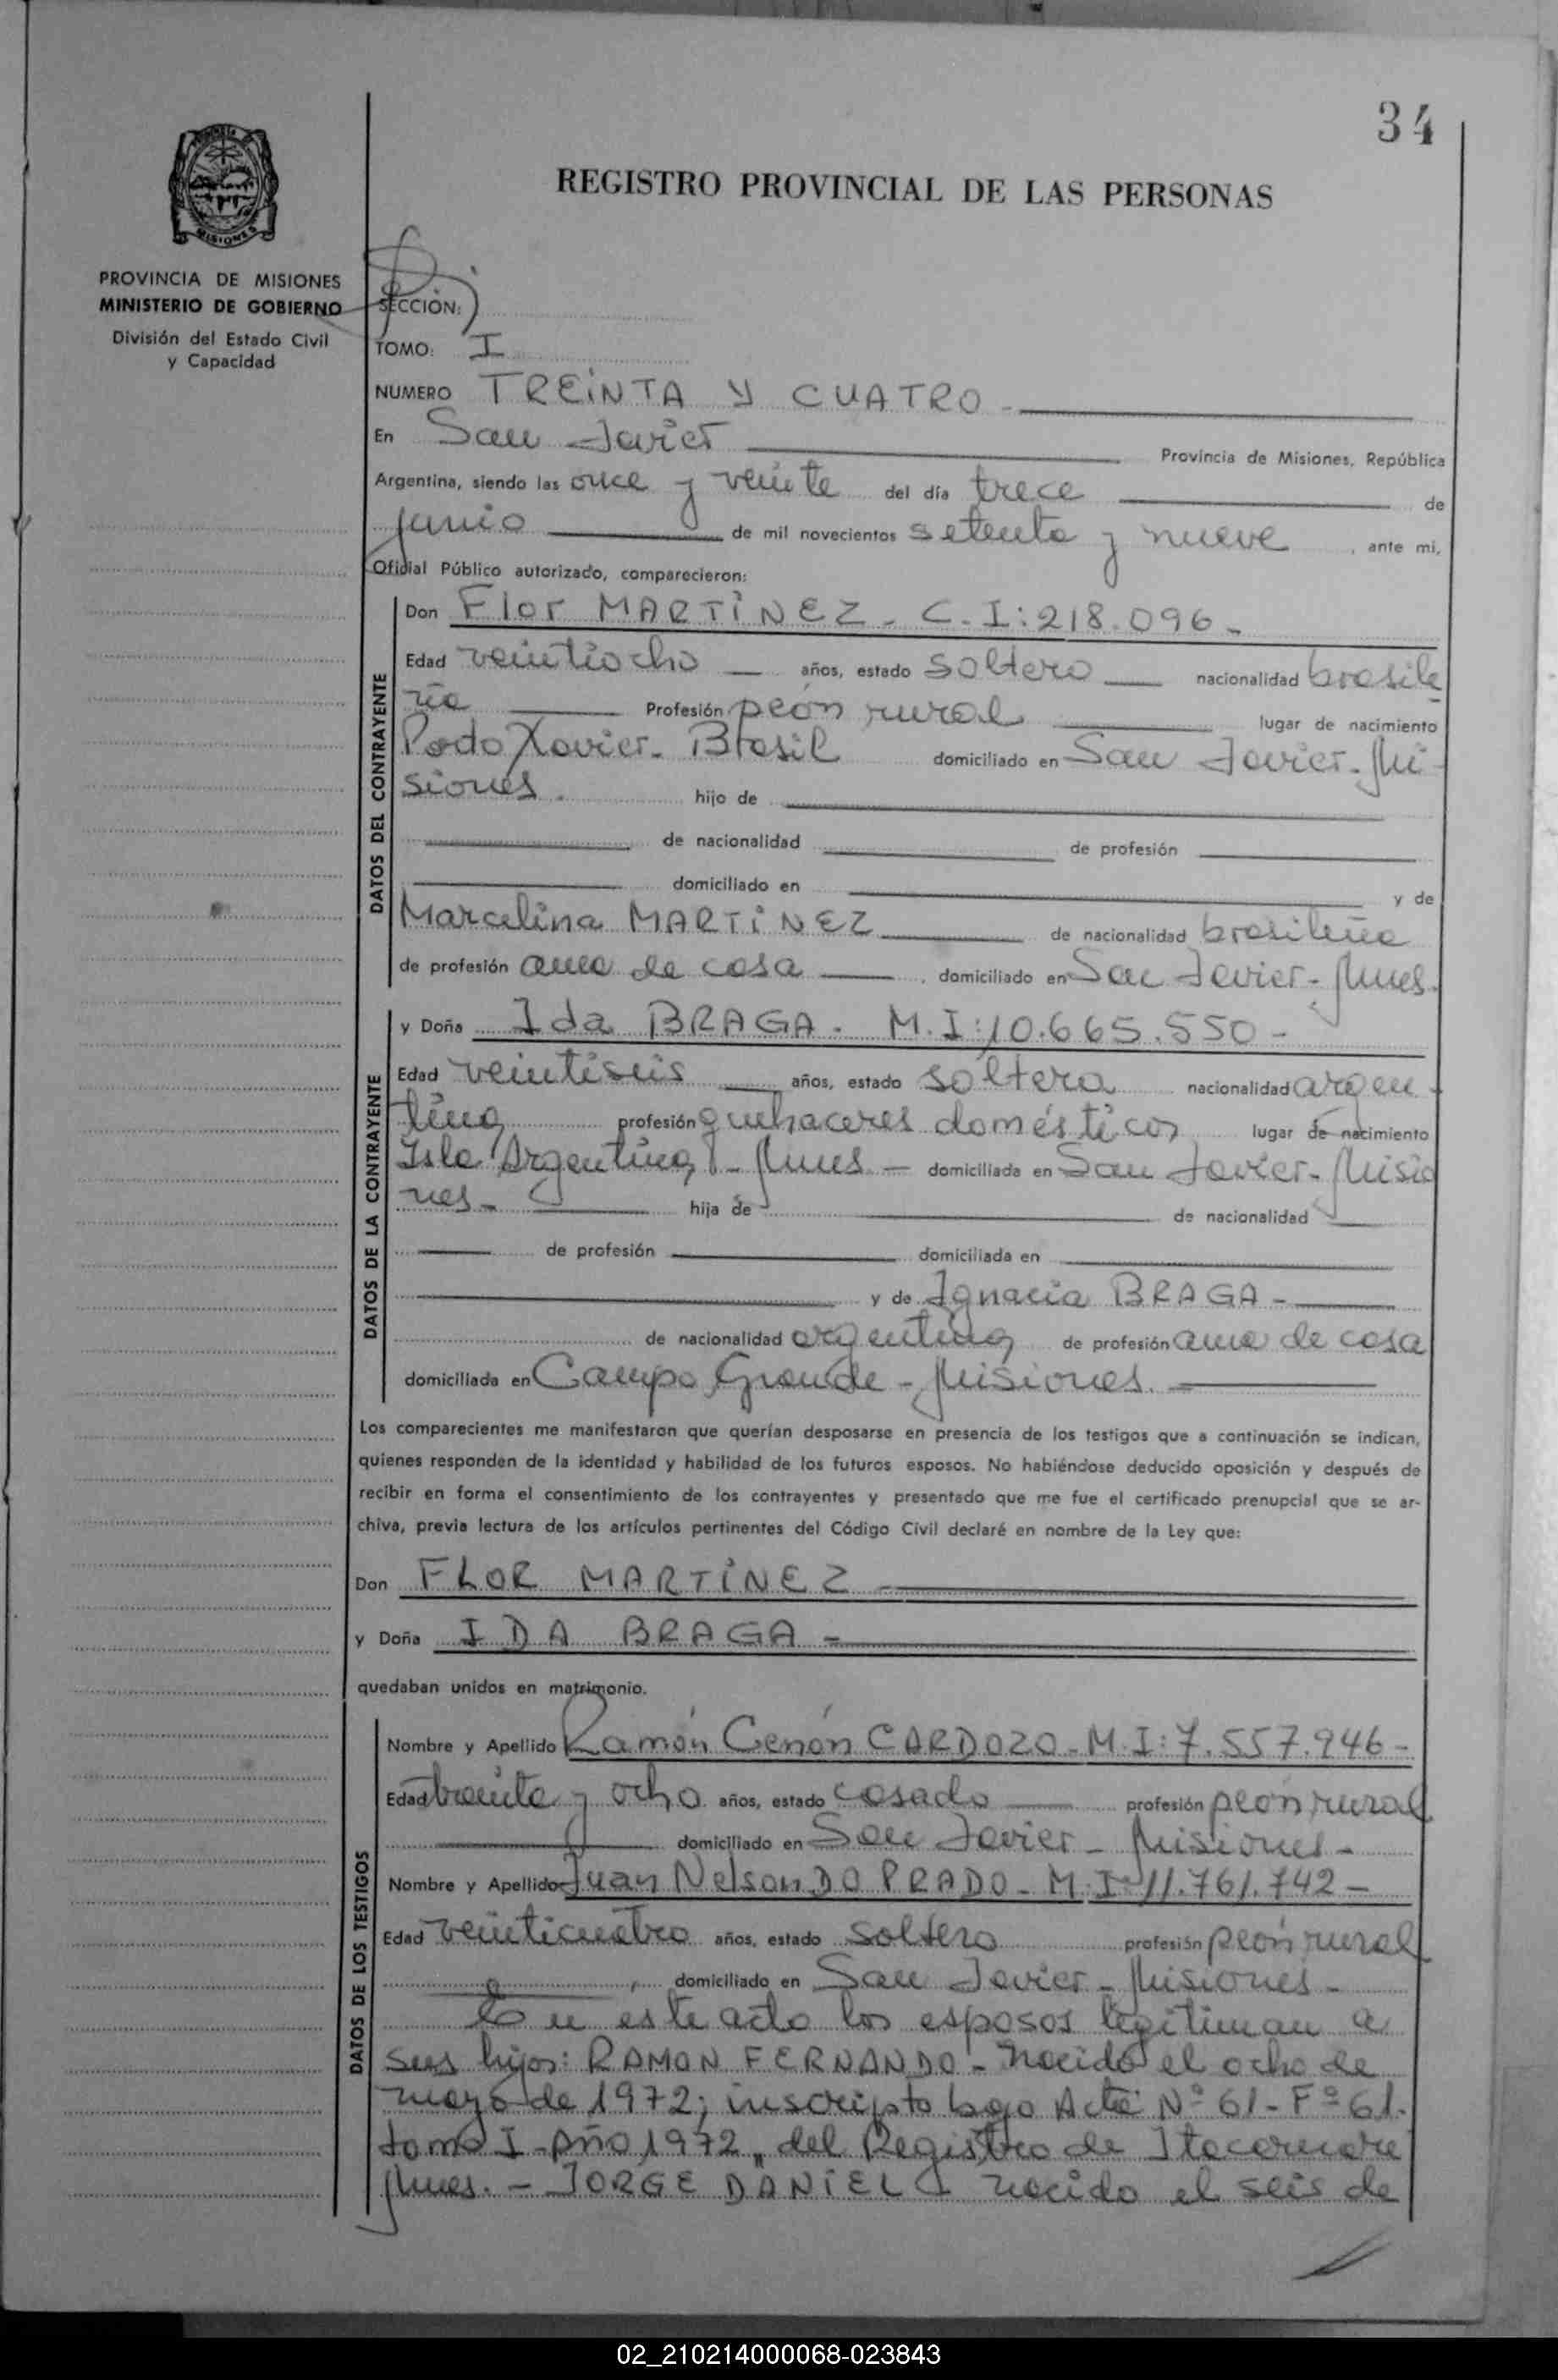 34
REGISTRO PROVINCIAL DE LAS PERSONAS
MISIONES
PROVINCIA DE MISIONES
MINISTERIO DE GOBIERNO
División del Estado Civil
y Capacidad
SECCIÓN:
TOMO: I
NUMERO TREINTA Y CUATRO -
En San Javier Provincia de Misiones, República
Argentina, siendo las once y veinte del día trece de
junio de mil novecientos setenta y nueve, ante mi,
Oficial Público autorizado, comparecieron:
DATOS DEL CONTRAYENTE
Don Flor MARTÍNEZ - C.I: 218.096 -
Edad veintiocho años, estado soltero nacionalidad brasile
ña Profesión peón rural lugar de nacimiento
Porto Xavier - Brasil domiciliado en San Javier - Mi-
siones. hijo de
de nacionalidad de profesión
domiciliado en y de
Marcelina MARTINEZ de nacionalidad brasileña
de profesión ama de casa, domiciliado en San Javier - Mnes.
DATOS DE LA CONTRAYENTE
y Doña Ida BRAGA - M.I: 10.665.550 -
Edad veintiseis años, estado soltera nacionalidad argen-
tina profesión quehaceres domésticos lugar de nacimiento
Isla Argentina - Mnes - domiciliada en San Javier - Misio
nes - hija de de nacionalidad
de profesión domiciliada en
y de Ignacia BRAGA -
de nacionalidad argentina de profesión ama de casa
domiciliada en Campo Grande - Misiones. -
Los comparecientes me manifestaron que querían desposarse en presencia de los testigos que a continuación se indican,
quienes responden de la identidad y habilidad de los futuros esposos. No habiéndose deducido oposición y después de
recibir en forma el consentimiento de los contrayentes y presentado que me fue el certificado prenupcial que se ar-
chiva, previa lectura de los artículos pertinentes del Código Civil declaré en nombre de la Ley que:
Don FLOR MARTÍNEZ -
y Doña IDA BRAGA -
quedaban unidos en matrimonio.
DATOS DE LOS TESTIGOS
Nombre y Apellido Ramón Cenón CARDOZO - M.I: 7.557.946 -
Edad treinta y ocho años, estado casado profesión peón rural
domiciliado en San Javier - Misiones -
Nombre y Apellido Juan Nelson DO PRADO - M.I: 11.761.742 -
Edad veinticuatro años, estado soltero profesión peón rural
domiciliado en San Javier - Misiones -
En este acto los esposos legitiman a
sus hijos: RAMON FERNANDO - nacido el ocho de
mayo de 1972; inscripto bajo Acta Nº 61 - Fº 61.
tomo I - Año 1972, del Registro de Itacaruare
Mnes. - JORGE DANIEL nacido el seis de
02_210214000068-023843